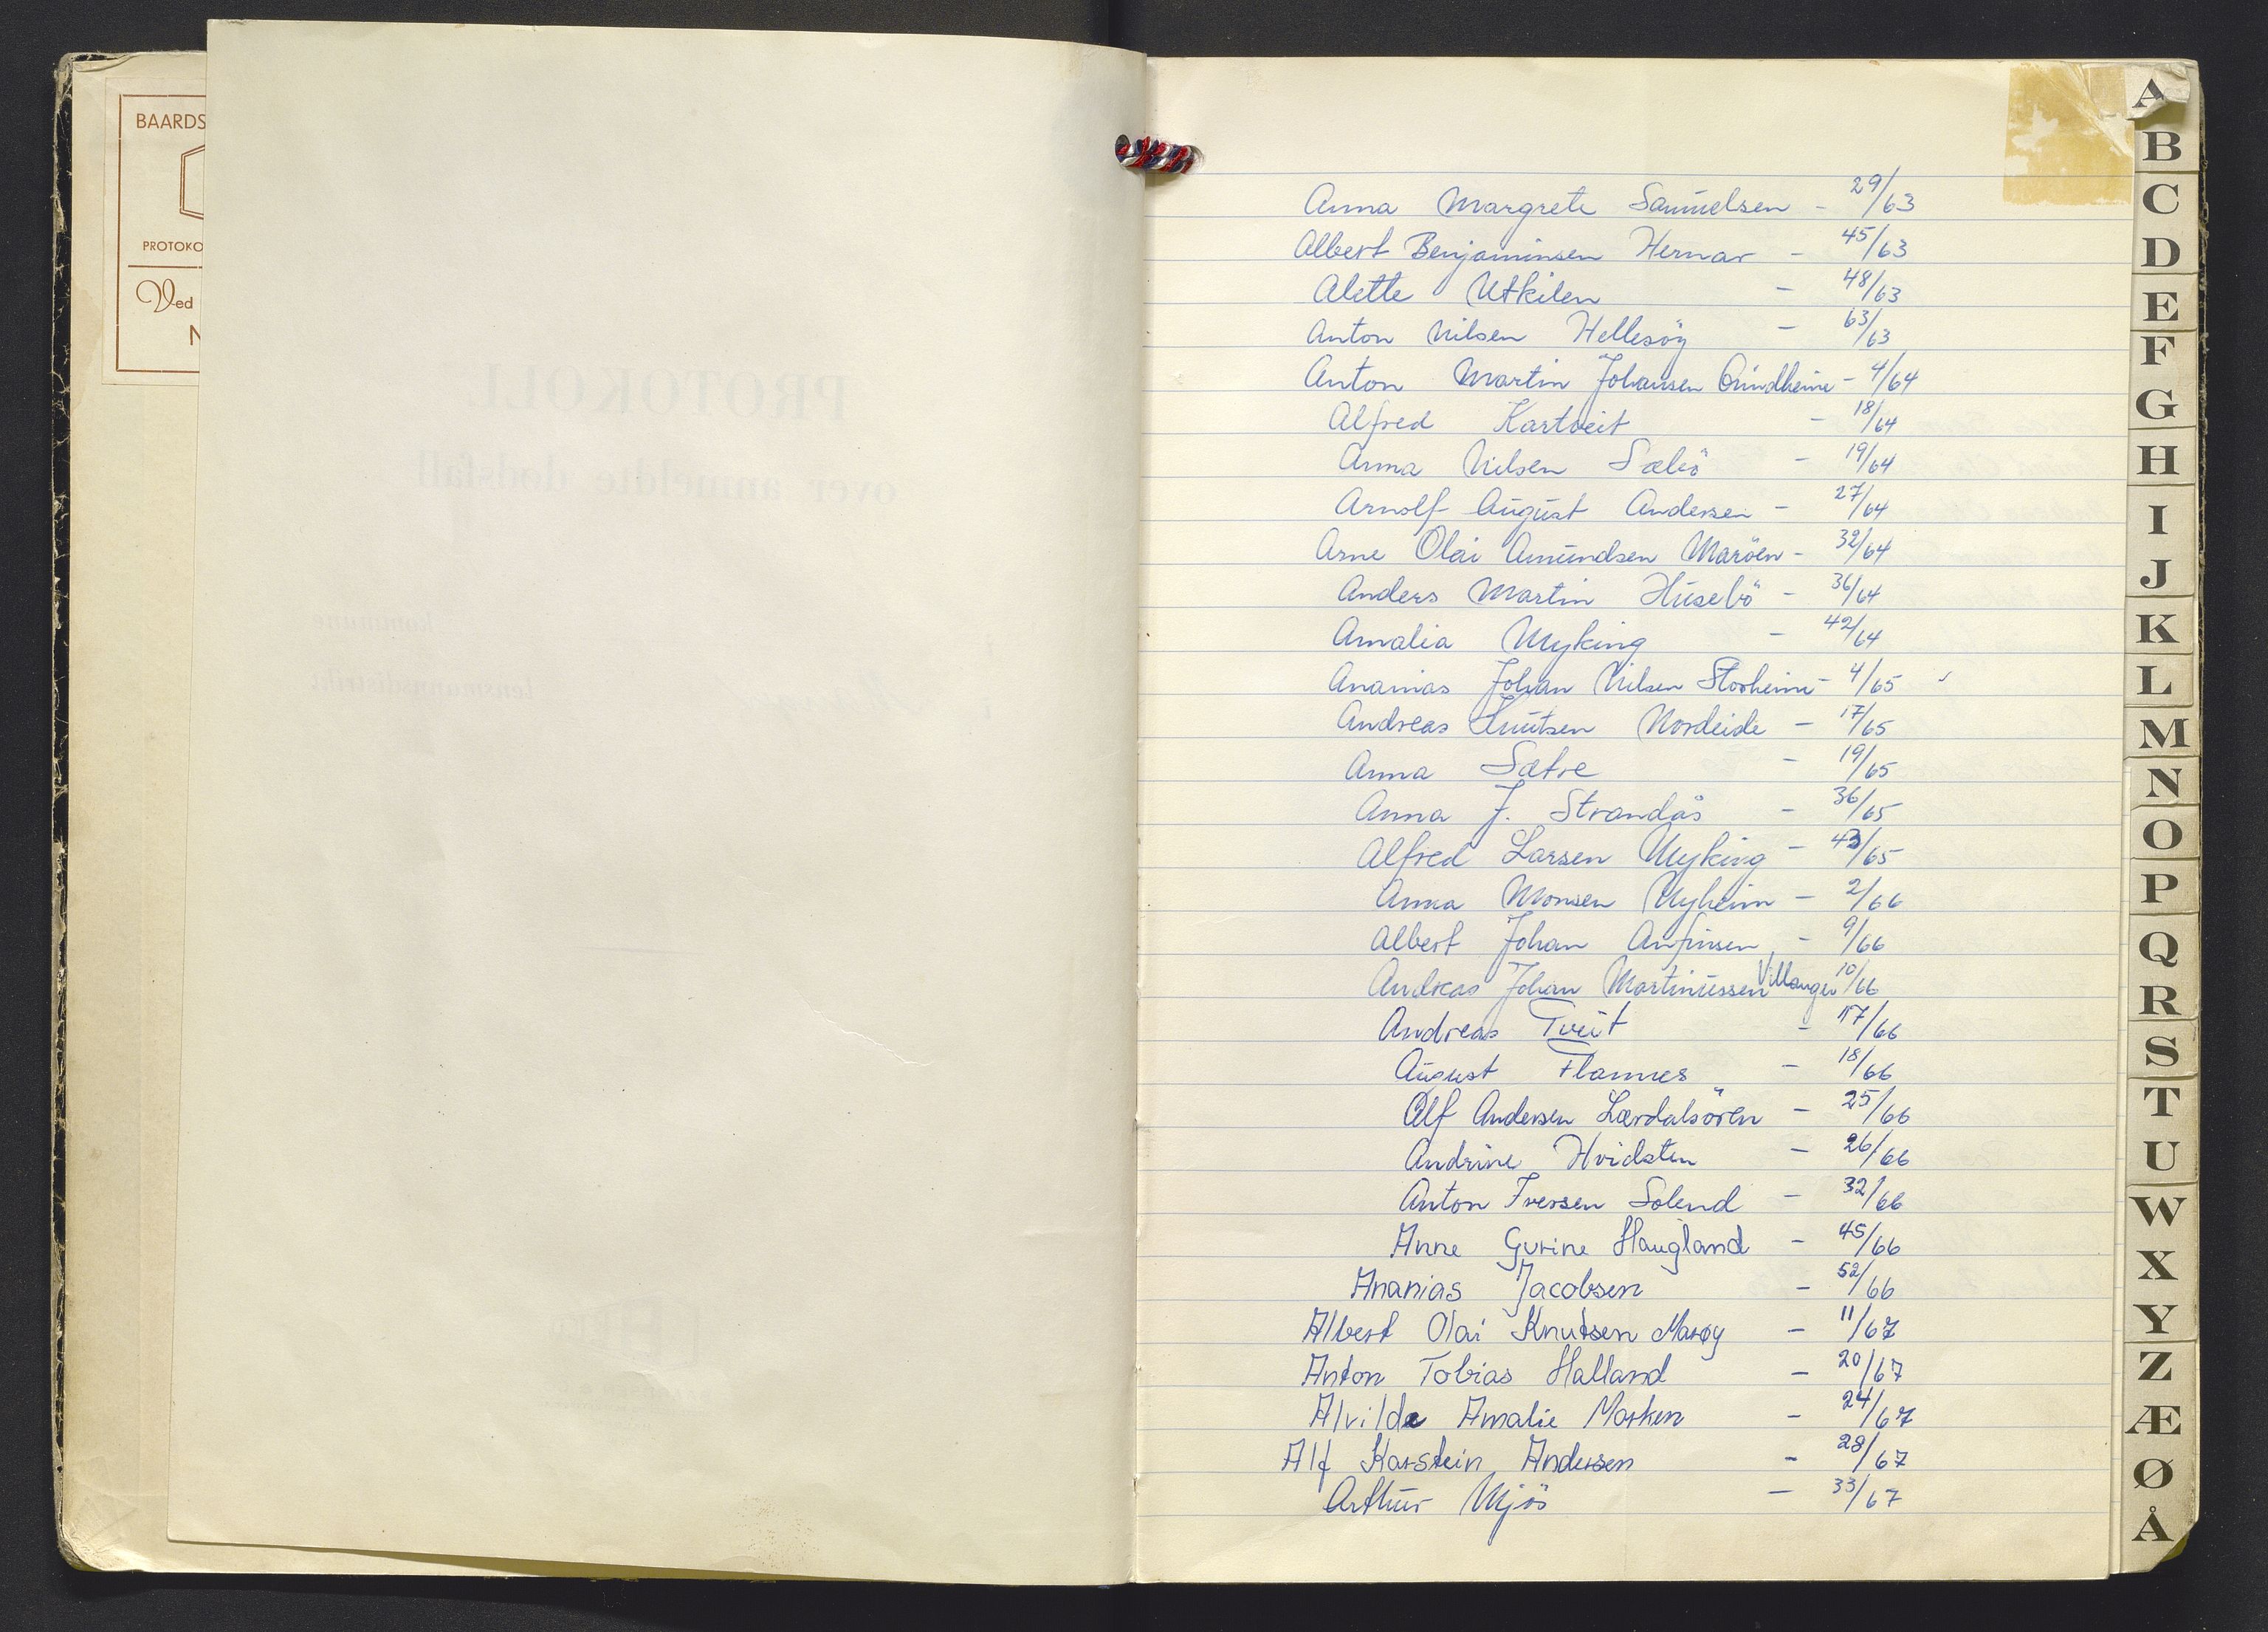 BAARDS
PROTOKO
Ved
N
PROTOKOLL
over anmeldte dødsfall
kommune
lensmannsdistrikt
Anna Margrete Samuelsen - 29/63
Albert Benjaminsen Hernar - 45/63
Alette Utkilen - 48/63
Anton Nilsen Hellesöy - 63/63
Anton Martin Johansen Grindheim - 4/64
Alfred Kartveit - 18/64
Anna Nilsen Sæbö - 19/64
Arnolf August Andersen - 27/64
Arne Olai Amundsen Maröen - 32/64
Anders Martin Husebö - 36/64
Amalia Myking - 42/64
Ananias Johan Nilsen Storheim - 4/65
Andreas Knutsen Nordeide - 17/65
Anna Sætre - 19/65
Anna J. Strandås - 36/65
Alfred Larsen Myking - 43/65
Anna Monsen Myheim - 2/66
Albert Johan Anfinsen - 9/66
Andreas Johan Martinussen Villanger 10/66
Andreas Tveit - 17/66
August Flannes - 18/66
Alf Andersen Lærdalsören - 25/66
Andrine Hvidsten - 26/66
Anton Iversen Solend - 32/66
Anne Gurine Haugland - 45/66
Ananias Jacobsen - 52/66
Albert Olai Knutsen Marøy - 11/67
Anton Tobias Halland - 20/67
Alvilde Amalie Marken - 24/67
Alf Karstein Andersen - 28/67
Arthur Mjös - 33/67
A
B
C
D
E
F
G
H
I
J
K
L
M
N
O
P
Q
R
S
T
U
W
X
Y
Z
Æ
Ø
Å